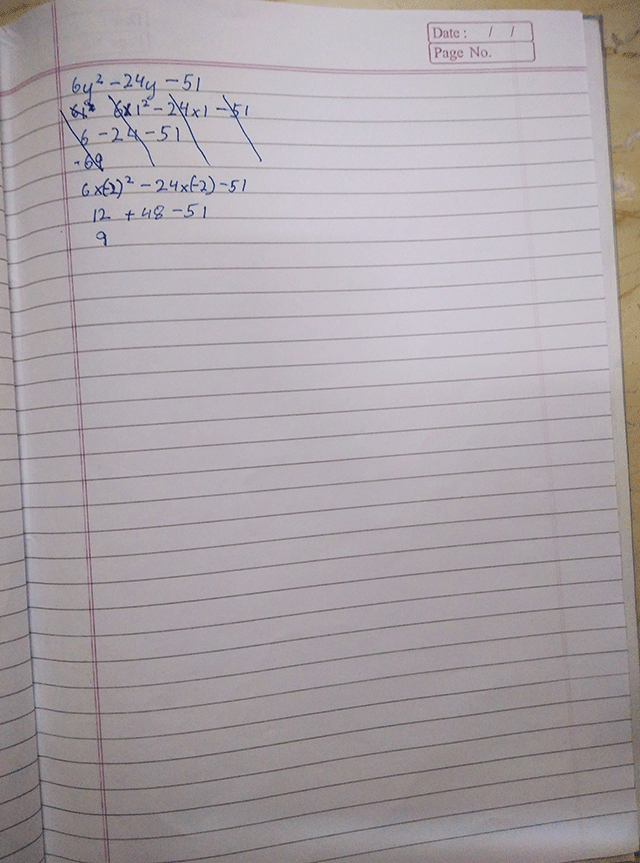 Date : / /
Page No.
6y² - 24y - 51
6x² 6x1² - 24x1 - 51
6 - 24 - 51
-69
6x(-2)² - 24x(-2) - 51
12 + 48 - 51
9